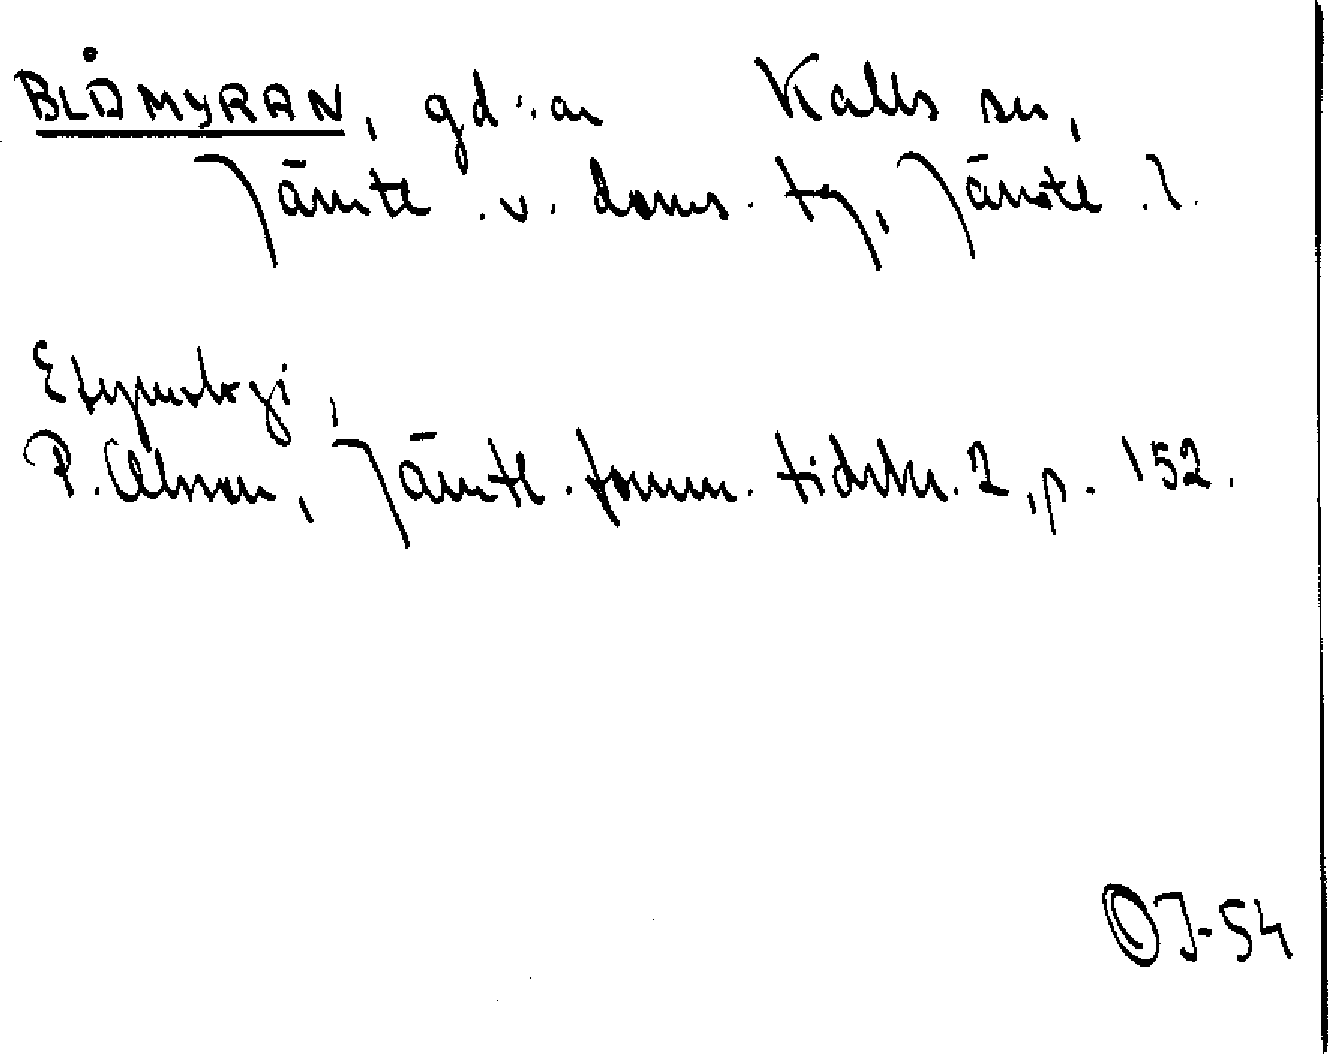 BLÅMYRAN, gd:ar Kalls sn,
Jämtl. v. doms. tg, Jämtl. l.
Etymologi,
P. Olsson, Jämtl. fornm. tidskr. 2, p. 152.
OJ-54